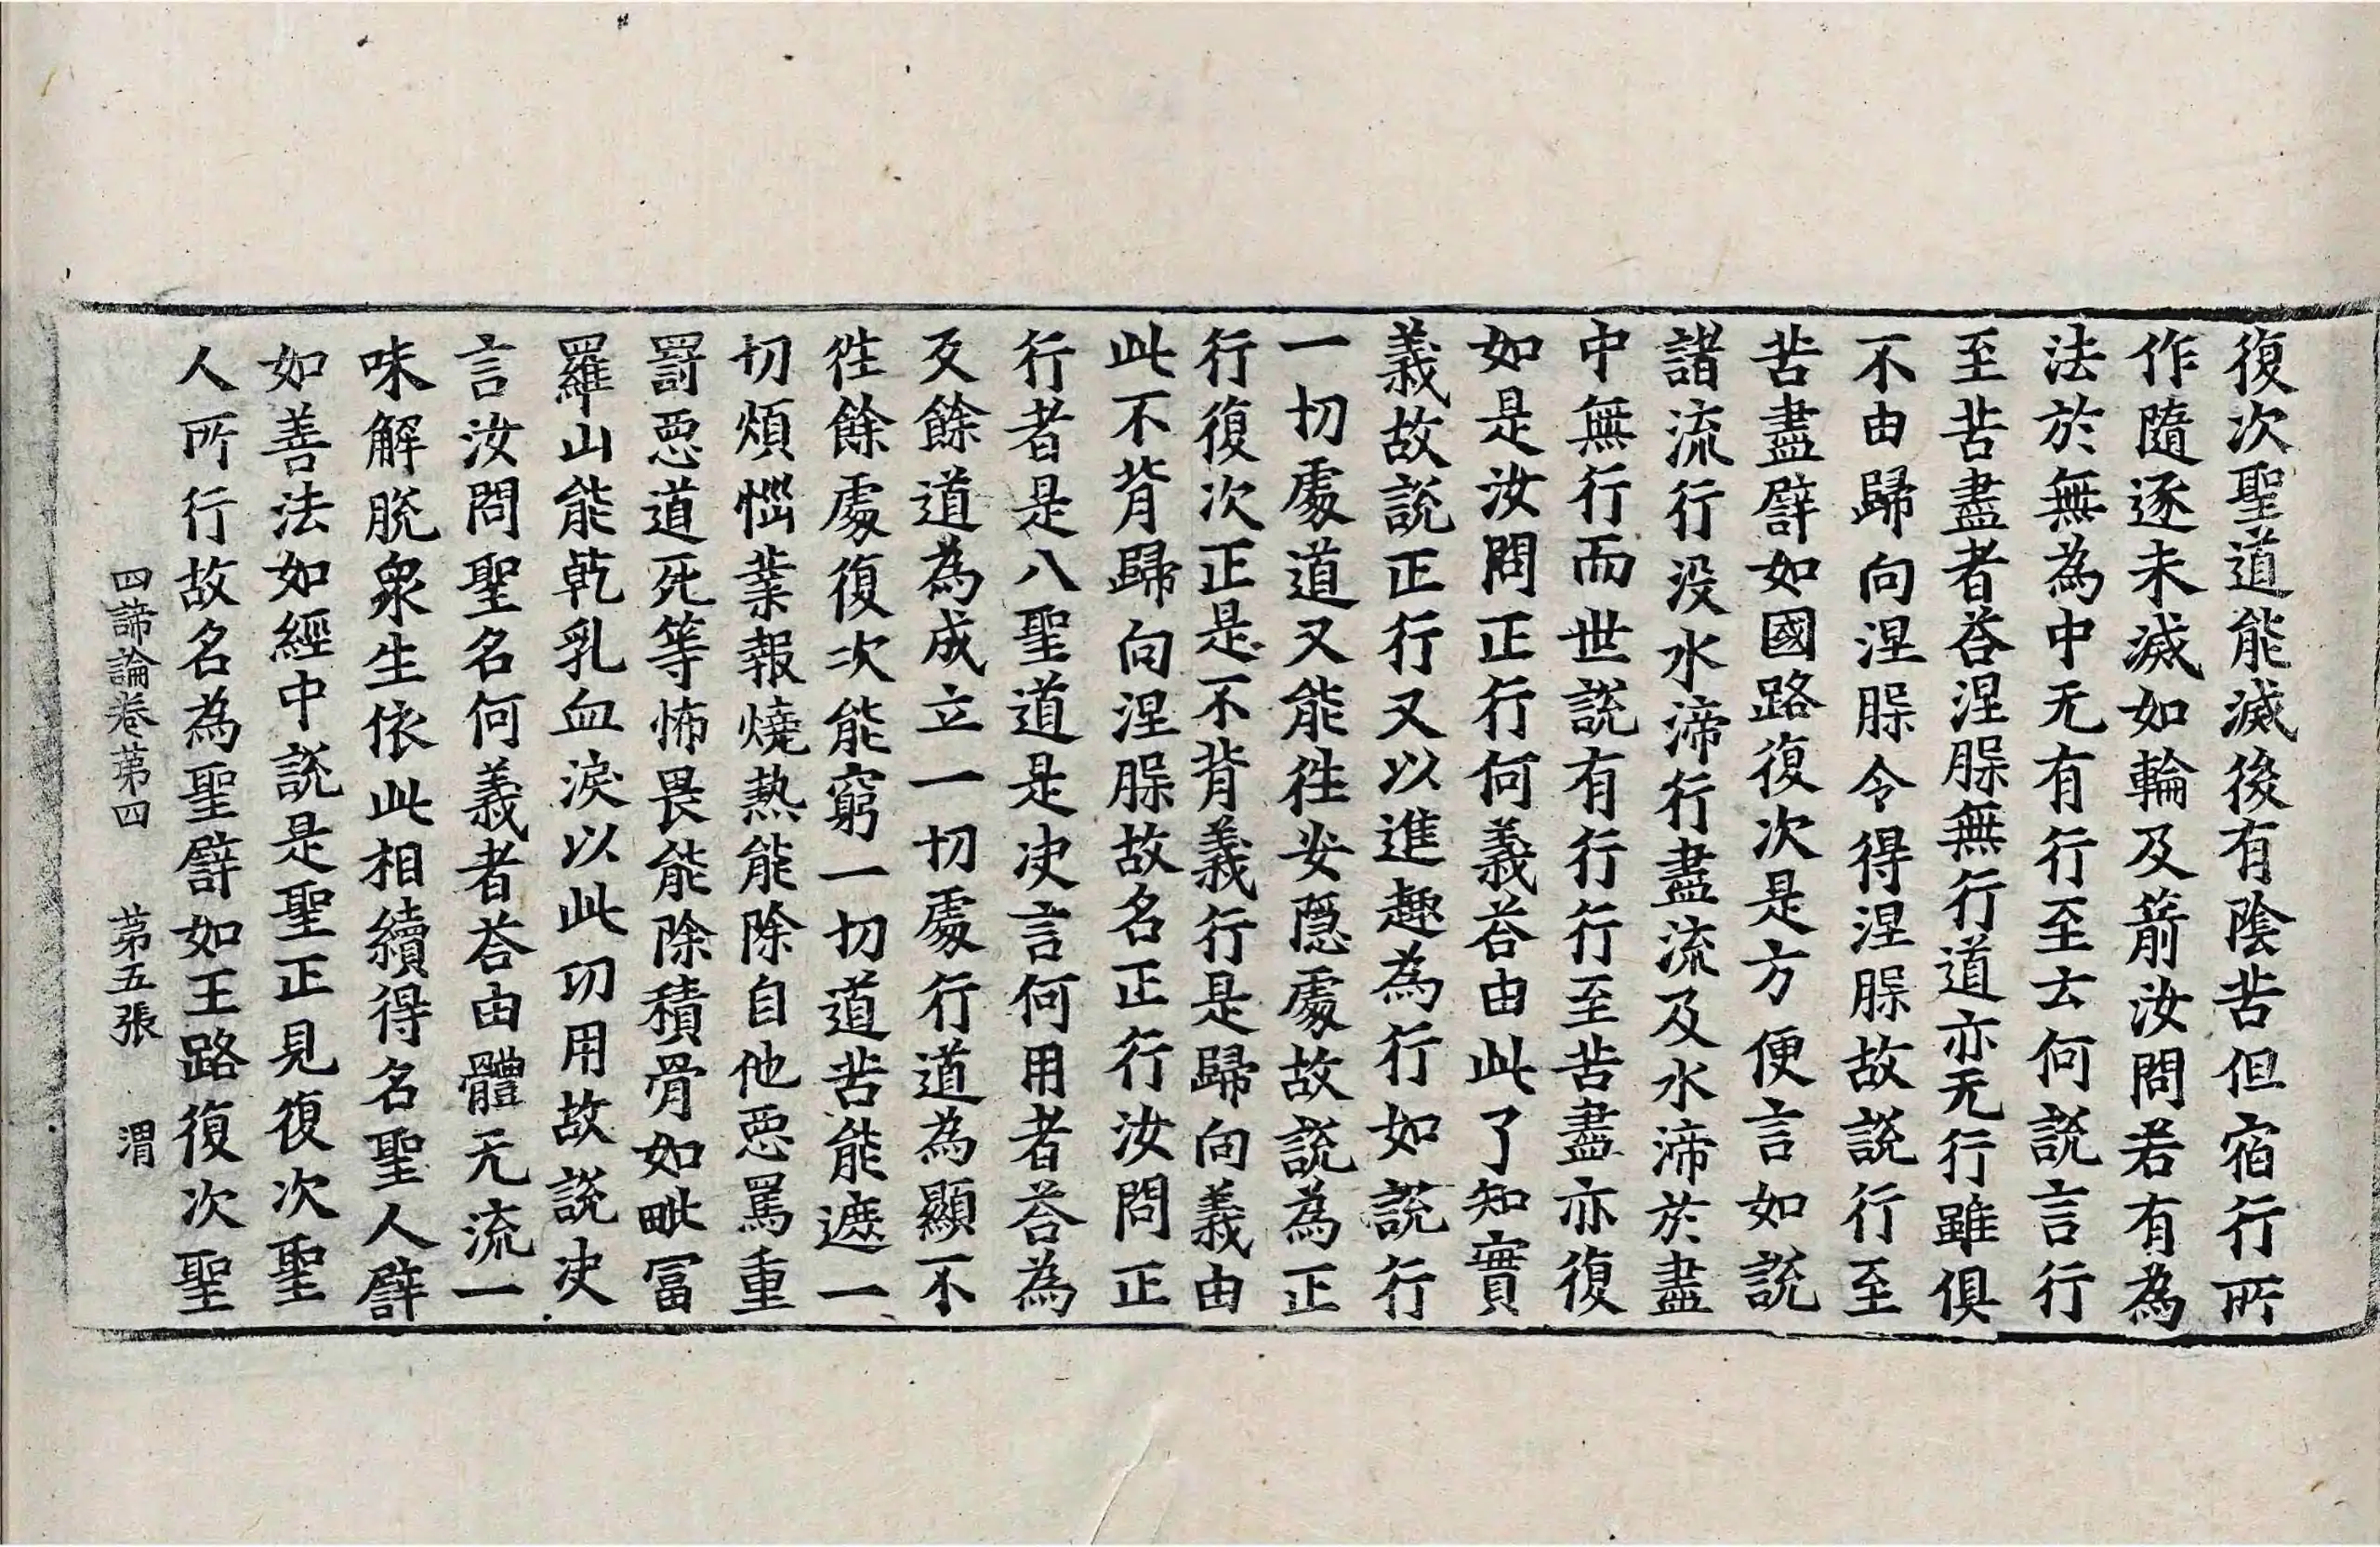 復次聖道能滅後有陰苦但宿行所
作隨逐未滅如輪及箭汝問若有為
法於無為中无有行至云何說言行
至苦盡者荅涅脲無行道亦无行雖俱
不由歸向涅脲令得涅脲故說行至
苦盡譬如國路復次是方便言如說
諸流行没水渧行盡流及水渧於盡
中無行而世說有行行至苦盡亦復
如是汝問正行何義荅由此了知實
義故說正行又以進趣為行如說行
一切處道又能徃安隱處故說為正
行復次正是不背義行是歸向義由
此不背歸向涅脲故名正行汝問正
行者是八聖道是决言何用者荅為
叐餘道為成立一切處行道為顯不
徃餘處復次能窮一切道苦能遮一
切煩惱業報燒熱能除自他惡罵重
罰惡道死等怖畏能除積骨如毗冨
羅山能乾乳血淚以此功用故說决
言汝問聖名何義者荅由體无流一
味解脫衆生依此相續得名聖人譬
如善法如經中說是聖正見復次聖
人所行故名為聖譬如王路復次聖
四諦論卷苐四 苐五張 渭